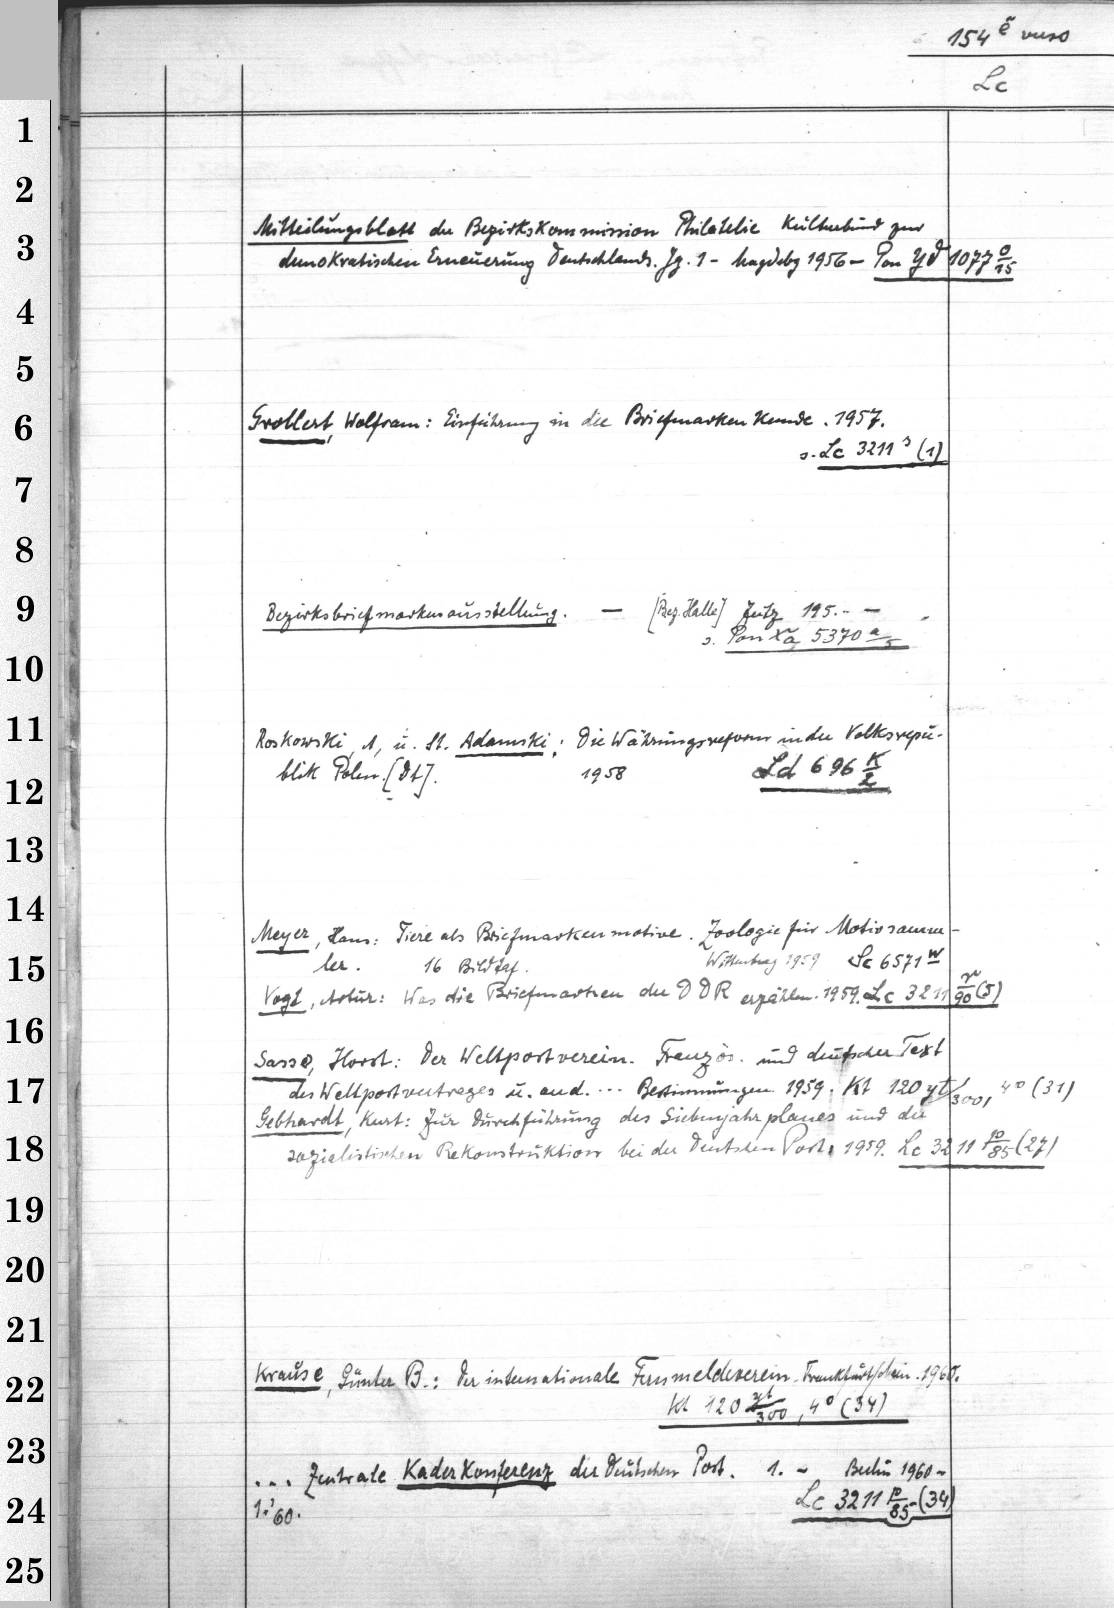 154 ē verso
Lc
Mitteilungsblatt der Bezirkskommission Philatelie Kulturbund zur
demokratischen Erneuerung Deutschlands. Jg. 1 - Magdebg 1956 - Pon Yd 1077 o/15
Grallert, Wolfram: Einführung in die Briefmarkenkunde. 1957.
s. Lc 3211 s (1)
Bezirksbriefmarkenausstellung. — [Bez. Halle] Zeitz 195.. —
s. Pon Xa 5370 a/5
Roskowski, A, u. St. Adamski: Die Währungsreform in der Volksrepu-
blik Polen. [Dt]. 1958 Ld 696 K/2
Meyer, Hans: Tiere als Briefmarkenmotive. Zoologie für Motivsamm-
ler. 16 Bildtaf. Wittenberg 1959 Sc 6571 w
Vogt, Artur: Was die Briefmarken der DDR erzählen. 1959. Lc 3211 r/90 (5)
Sasse, Horst: Der Weltpostverein. Französ. und deutscher Text
des Weltpostvertrages u. and. ... Bestimmungen 1959. Kt 120 yt/300, 4° (31)
Gebhardt, Kurt: Zur Durchführung des Siebenjahrplanes und der
sozialistischen Rekonstruktion bei der Deutschen Post. 1959. Lc 3211 p/85 (27)
Krause, Günter B.: Der internationale Fernmeldeverein. Frankfurt/Main. 1960.
Kt 120 yt/300, 4° (34)
... Zentrale Kaderkonferenz der Deutschen Post. 1. - Berlin 1960 -
1.'60. Lc 3211 p/85 - (34)
1
2
3
4
5
6
7
8
9
10
11
12
13
14
15
16
17
18
19
20
21
22
23
24
25